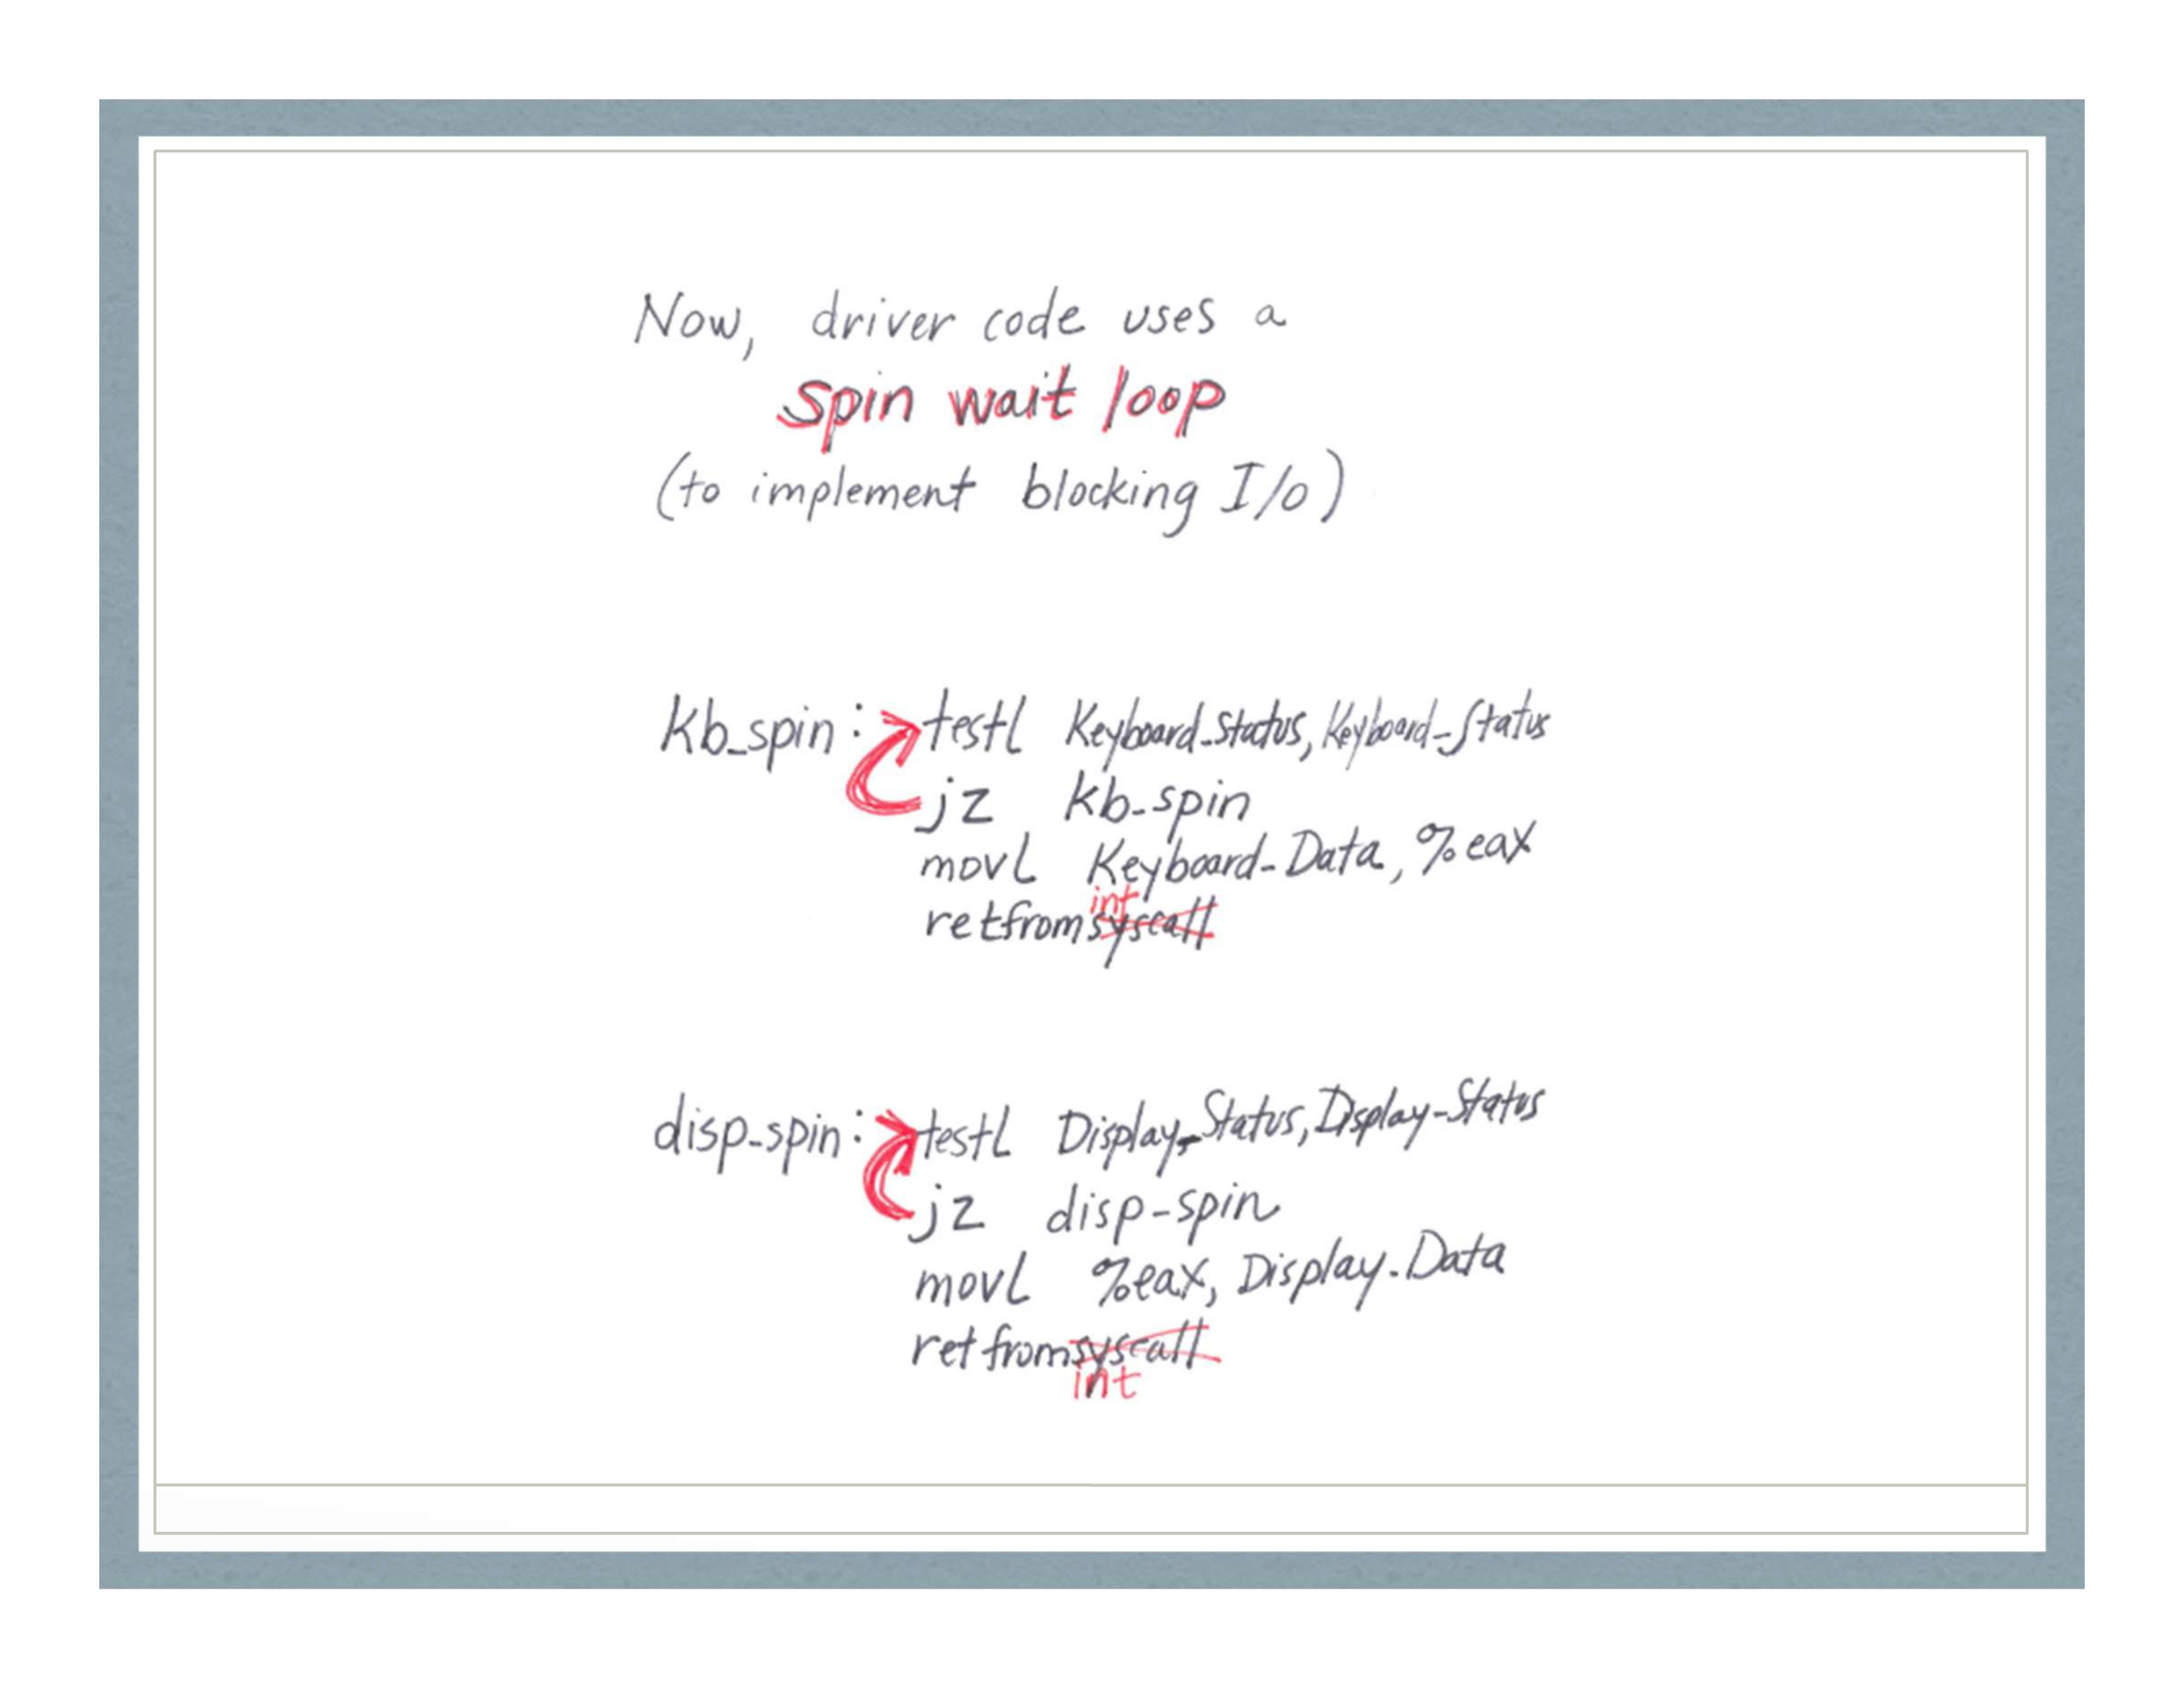 Now, driver code uses a
spin wait loop
(to implement blocking I/O)
kb_spin: testl Keyboard_Status, Keyboard_Status
jz kb_spin
movl Keyboard_Data, %eax
int
retfromsyscall
disp_spin: testl Display_Status, Display_Status
jz disp_spin
movl %eax, Display_Data
retfromsyscall
int